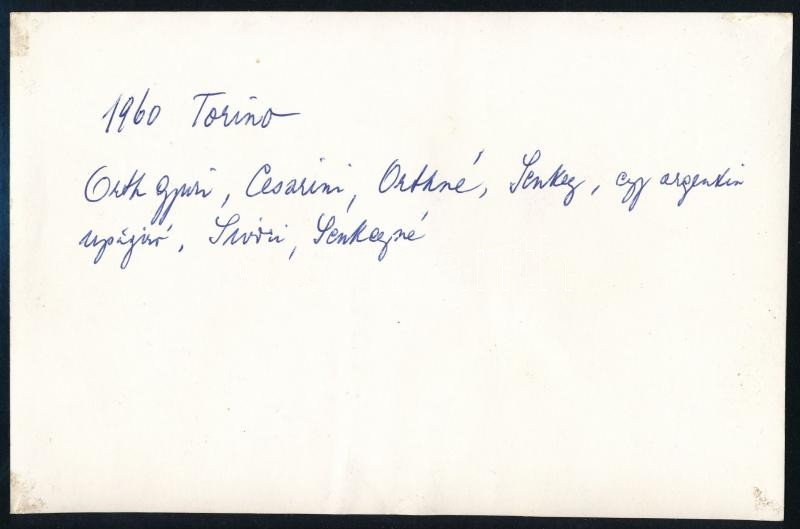 1960 Torino
Orth Gyuri, Cesarini, Orthné, Senkey, egy argentin
ujságíró, Sivori, Senkeyné